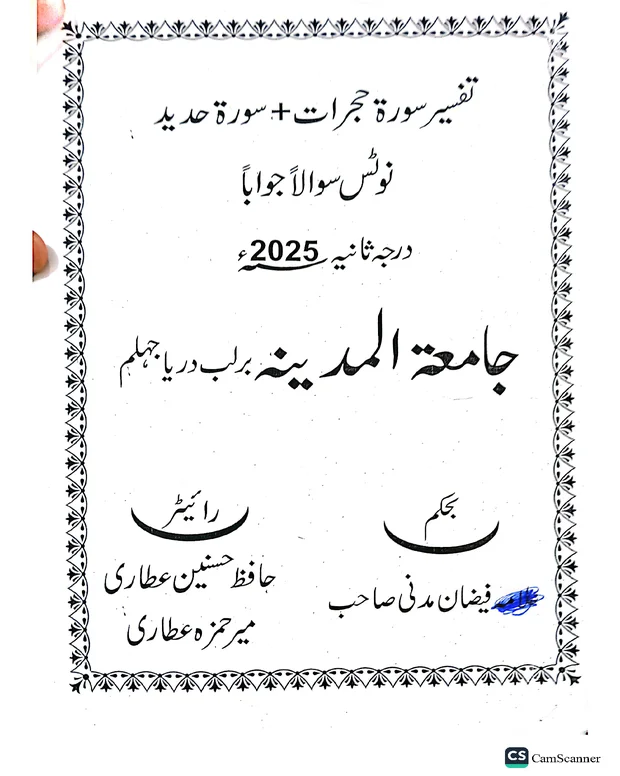 تفسیر سورۃ حجرات + سورۃ حدید
نوٹس سوالاً جواباً
درجہ ثانیہ 2025ء
جامعۃ المدینہ برلب دریا جہلم
بحکم
فیضان مدنی صاحب
رائیٹر
حافظ حسنین عطاری
میر حمزہ عطاری
CS CamScanner